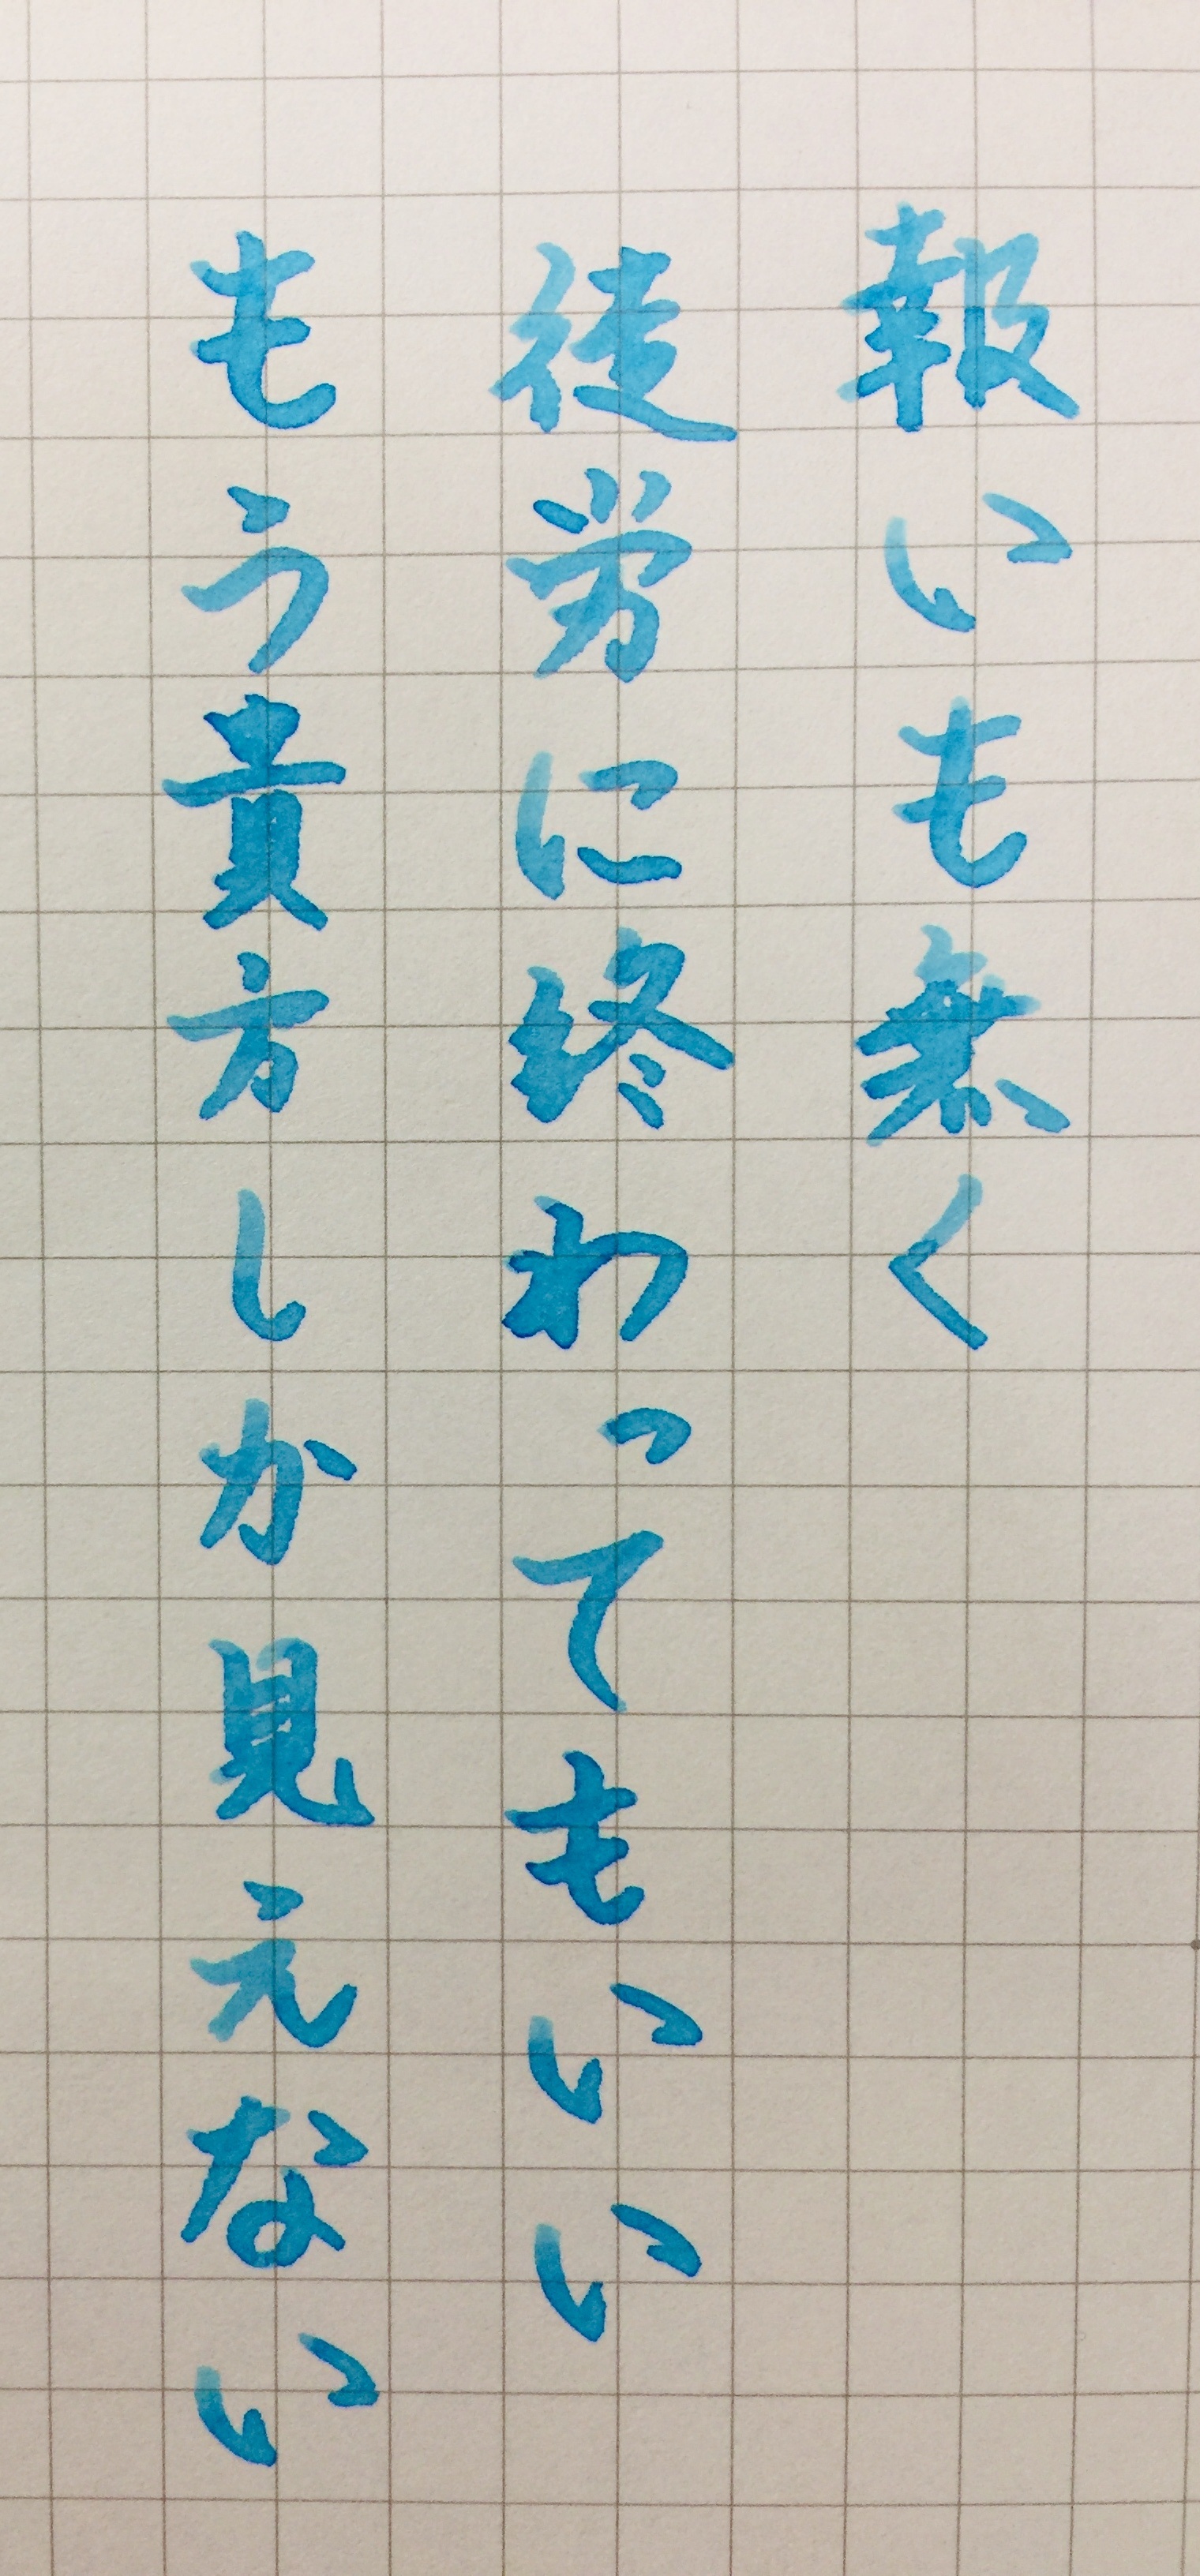 報いも無く
徒労に終わってもいい
もう貴方しか見えない